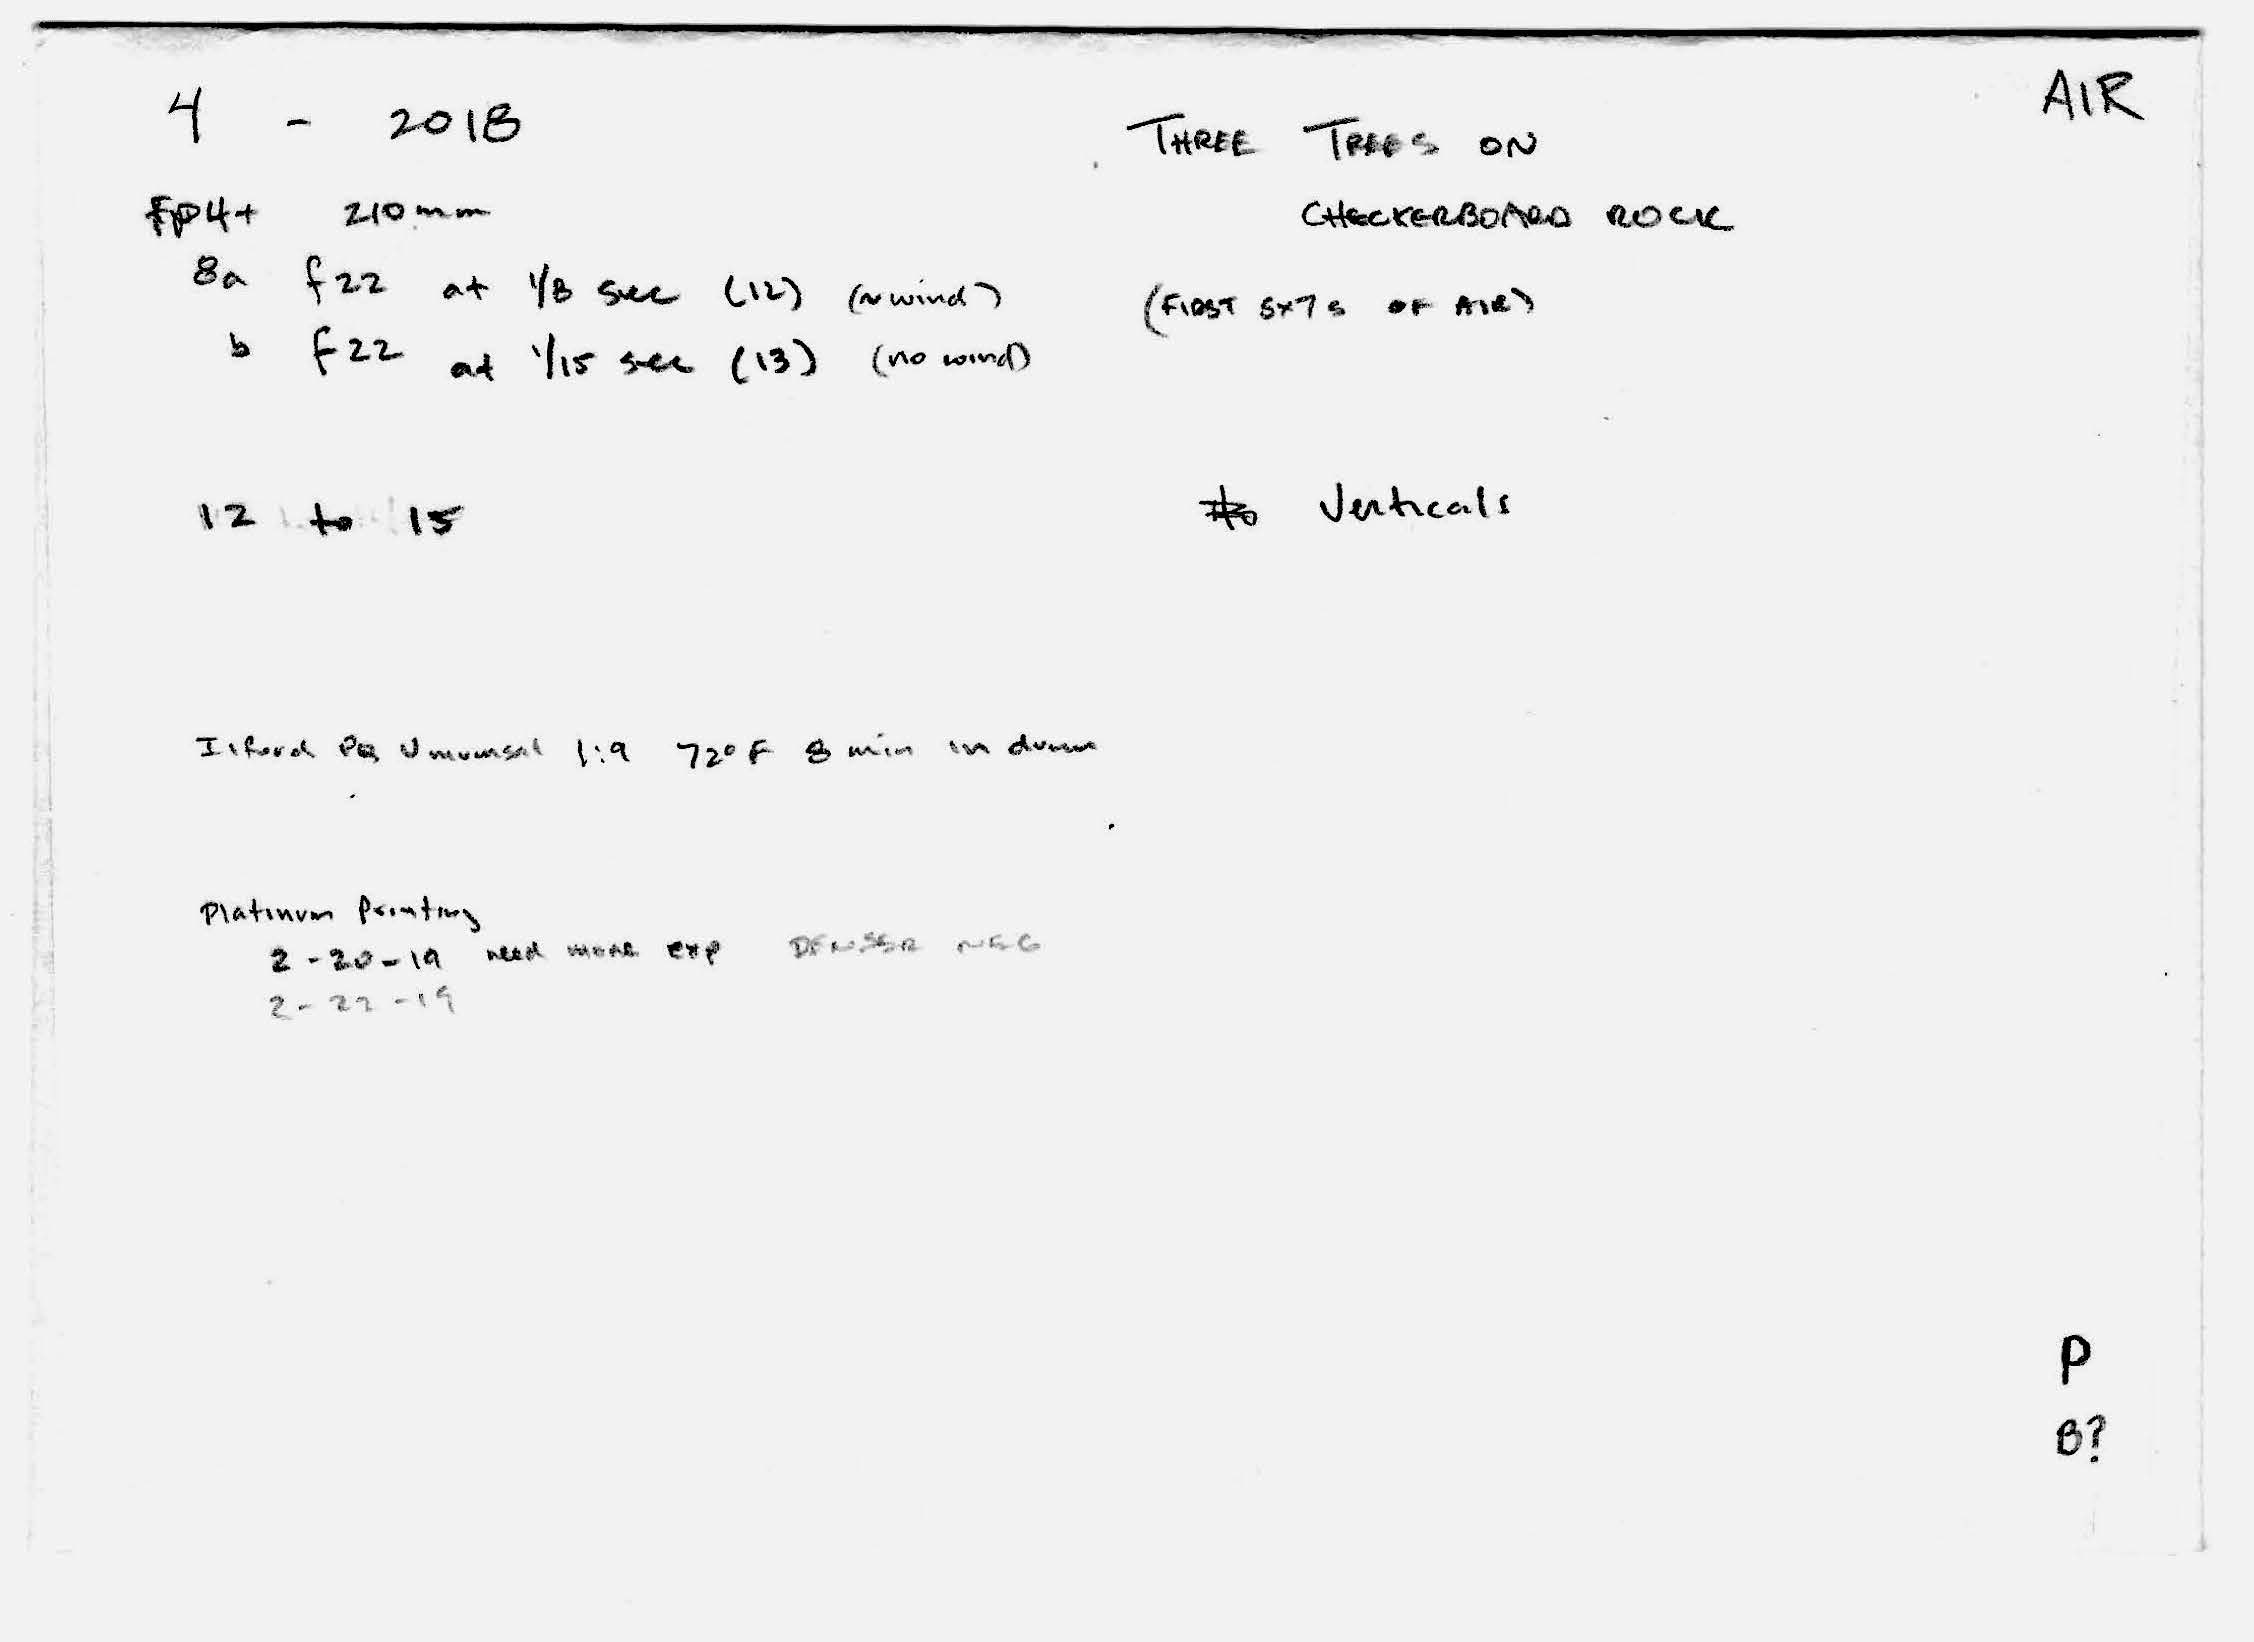 AIR
4 - 2018
THREE TREES ON
CHECKERBOARD ROCK
FP4+ 210mm
8a f22 at 1/8 sec (12) (~wind)
(FIRST 5x7s OF AIR)
b f22 at 1/15 sec (13) (no wind)
12 to 15
Verticals
Ilford PQ Universal 1:9 72° F 8 min in drum
Platinum Printing
2-20-19 need more exp DENSER NEG
2-22-19
P
B?